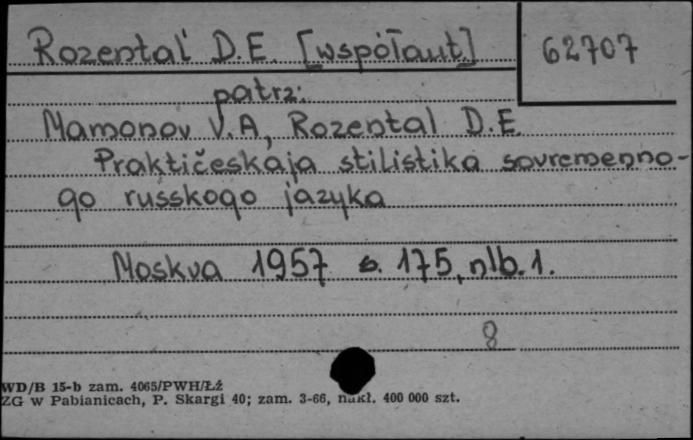 Rozental' D.E. [współaut] 62707
patrz:
Mamonov V.A, Rozental D.E.
Praktičeskaja stilistika sovremenno-
go russkogo jazyka
Moskva 1957 s. 175, nlb. 1.
8
WD/B 15-b zam. 4065/PWH/Łź
ZG w Pabianicach, P. Skargi 40; zam. 3-66, nakł. 400 000 szt.